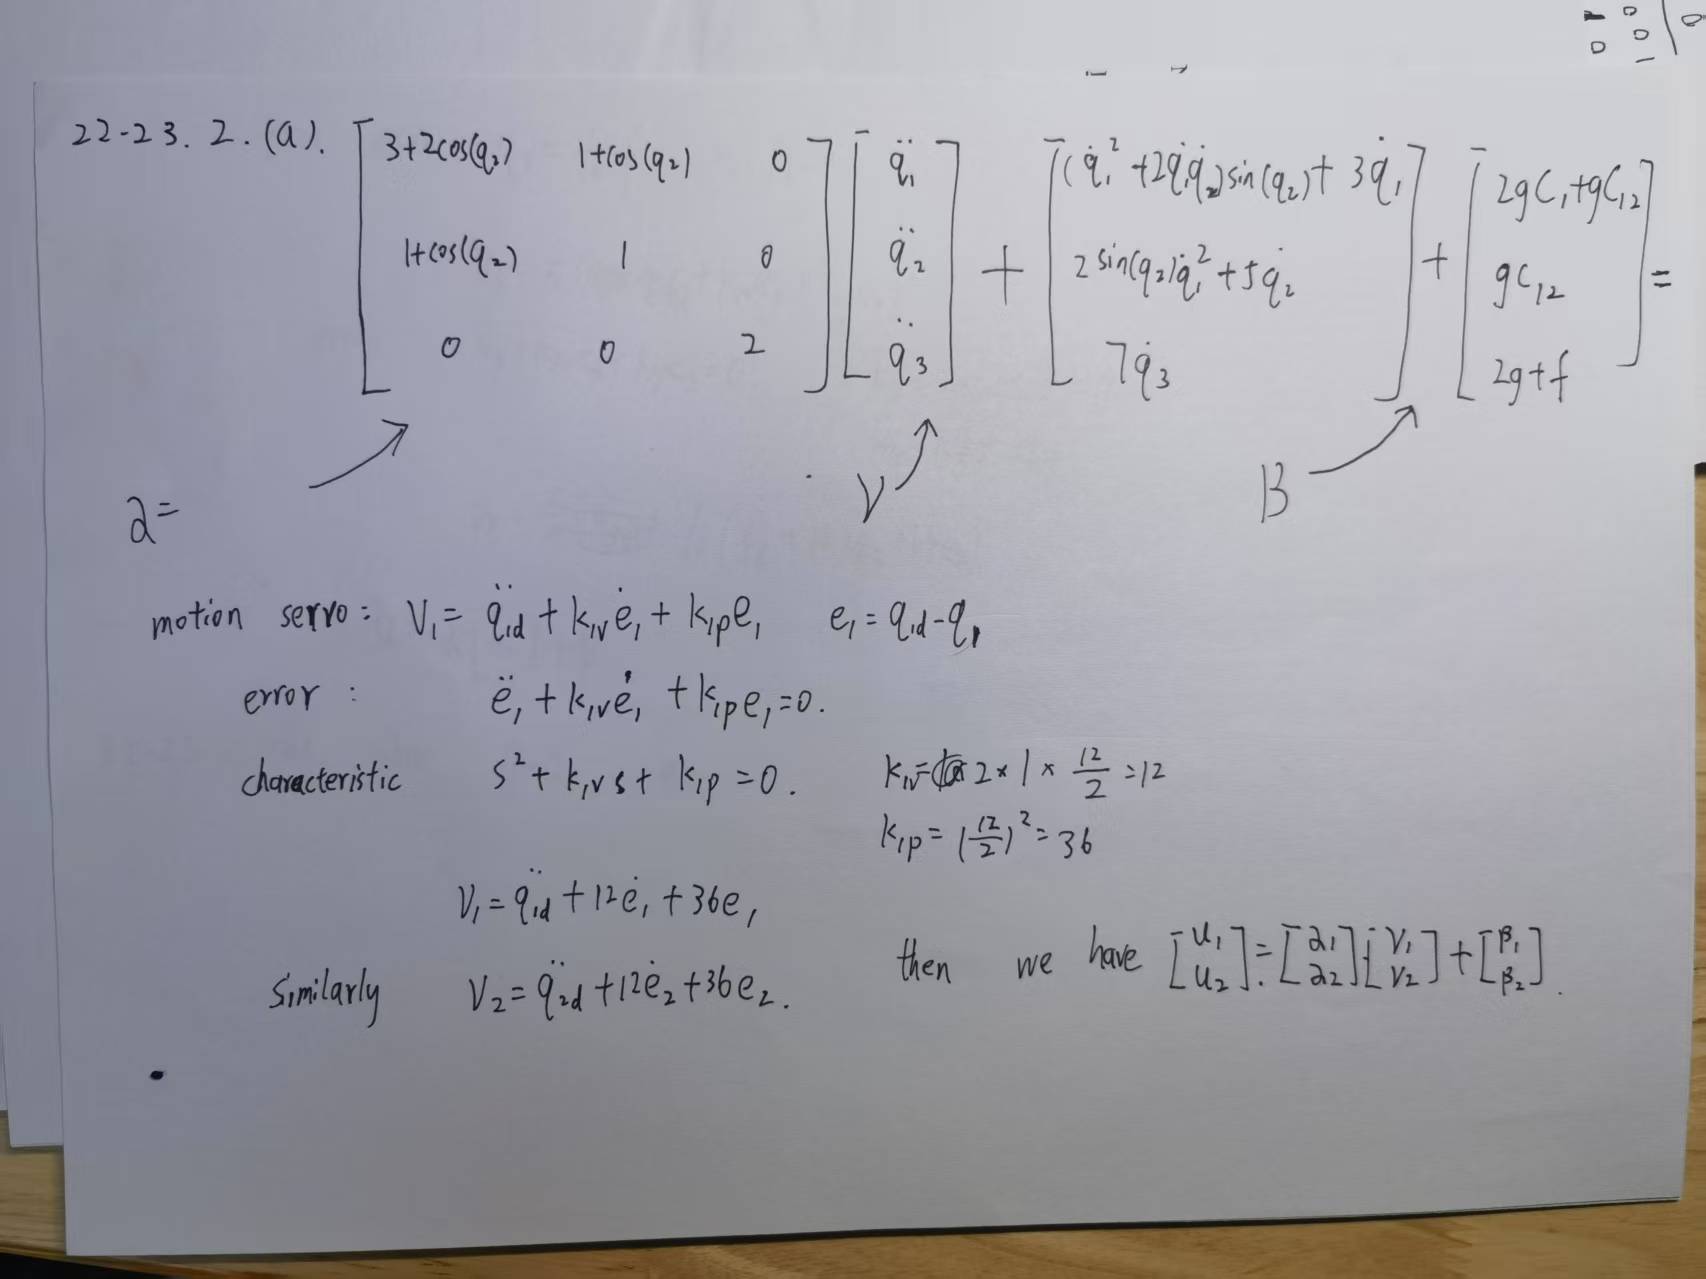 22-23. 2. (a). [3+2cos(q₂) 1+cos(q₂) 0] [q̈₁] [(q̇₁² + 2q̇₁q̇₂)sin(q₂) + 3q̇₁] [2gC₁+gC₁₂]
1+cos(q₂) 1 0 q̈₂ + 2 sin(q₂)q̇₁² + 5q̇₂ + gC₁₂ =
0 0 2 q̈₃ 7q̇₃ 2g+f
2= V B
motion servo: V₁ = q̈₁d + k₁v ė₁ + k₁p e₁ e₁ = q₁d - q₁
error : ë₁ + k₁v ė₁ + k₁p e₁ = 0.
characteristic s² + k₁v s + k₁p = 0. k₁v = 2 × 1 × 12/2 = 12
k₁p = (12/2)² = 36
V₁ = q̈₁d + 12ė₁ + 36e₁
Similarly V₂ = q̈₂d + 12ė₂ + 36e₂. then we have [u₁ u₂] = [2₁ 2₂][V₁ V₂] + [β₁ β₂].